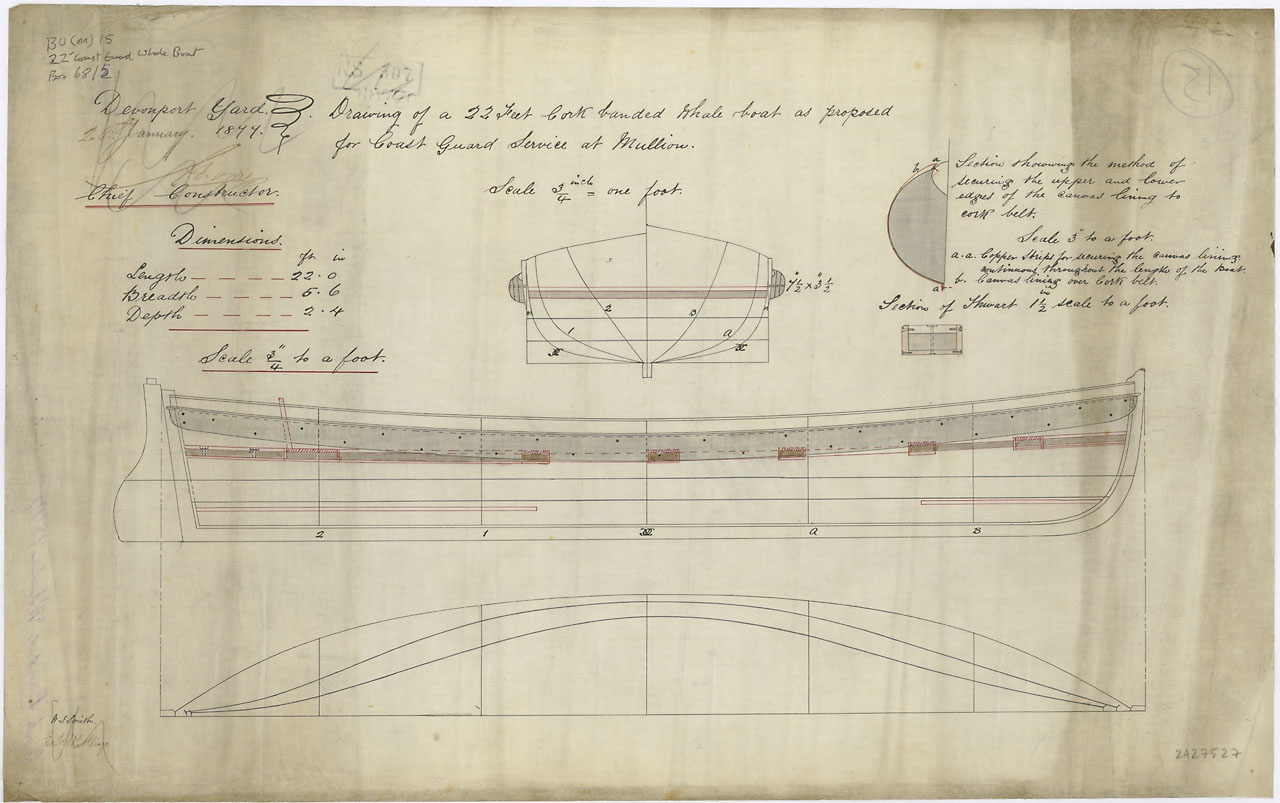 BU (m) 15
22' Coast Guard Whale Boat
Box 68/5
NS 307
13
Devonport Yard.
January. 1877.
Drawing of a 22 Feet Cork banded Whale boat as proposed
for Coast Guard Service at Mullion.
Chief Constructor.
Scale 3/4 inch = one foot.
Dimensions.
ft in
Length — — — — 22.0
Breadth — — — — 5.6
Depth — — — — 2.4
Scale 3/4" to a foot.
b a
a
Section showing the method of
securing the upper and lower
edges of the canvas lining to
cork belt.
Scale 3" to a foot.
a.a. Copper strips for securing the canvas lining.
continuous throughout the length of the boat.
b. Canvas lining over Cork belt.
Section of Thwart 1 1/2 in scale to a foot.
7 1/2" x 3 1/2"
1 2 B A
2 1 A B
2A27527